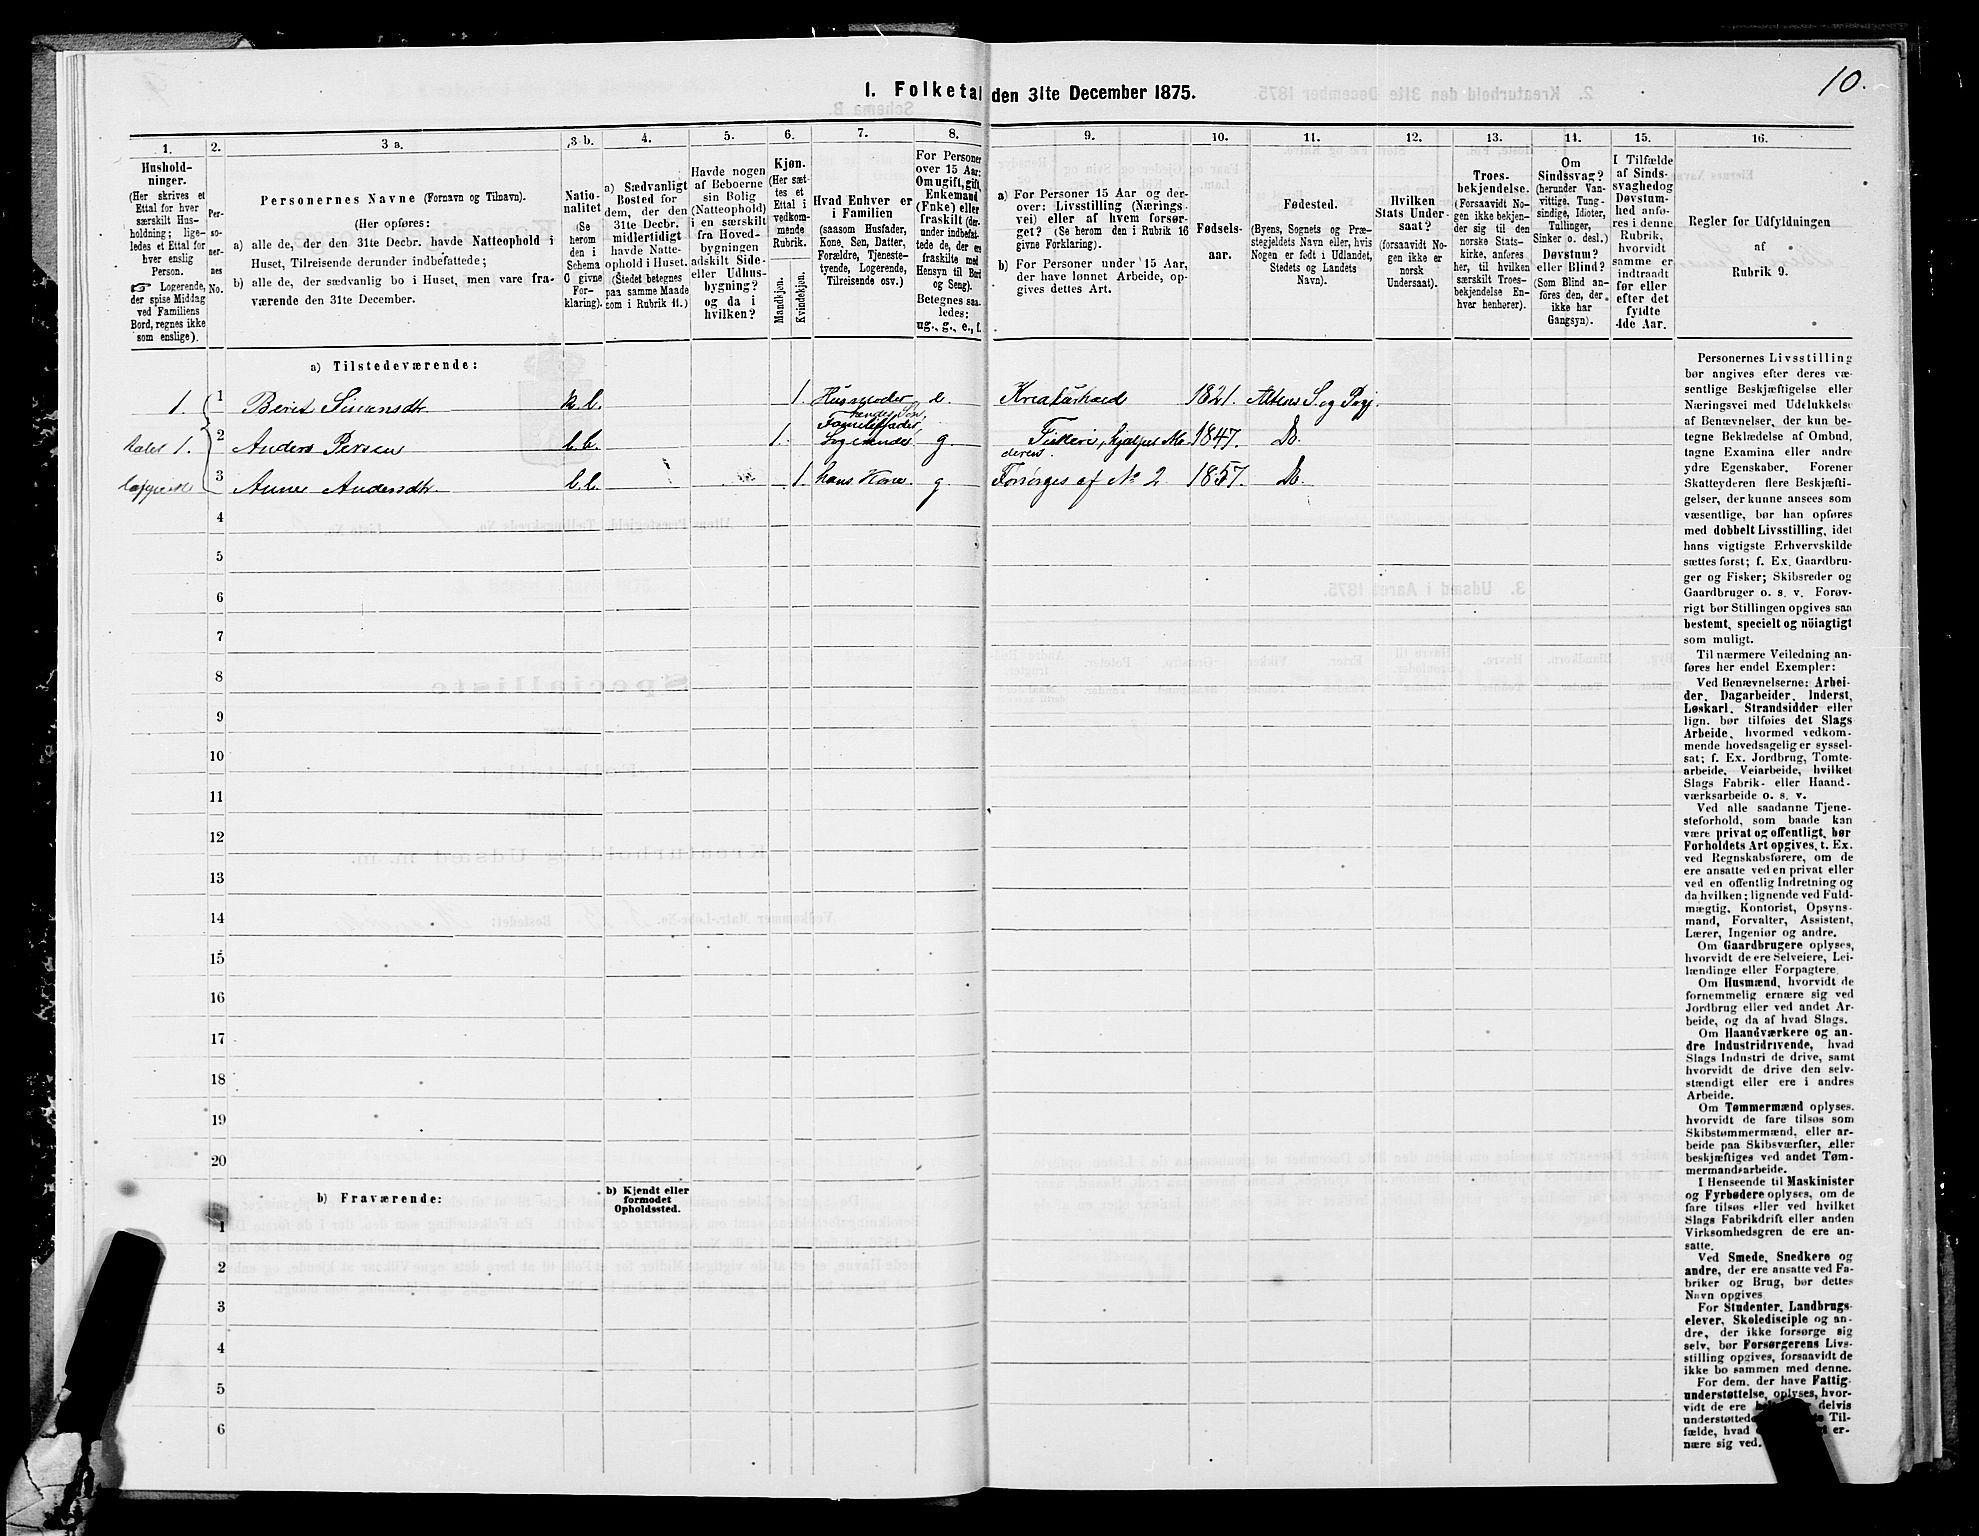 10.
1. Folketal den 31te December 1875.
1. 2. 3 a. 3 b. 4. 5. 6. 7. 8. 9. 10. 11. 12. 13. 14. 15. 16.
Hushold-
ninger.
(Her skrives et
Ettal for hver
særskilt Hus-
holdning; lige-
ledes et Ettal for
hver enslig
Person.
☞ Logerende,
der spise Middag
ved Familiens
Bord, regnes ikke
som enslige).
Per-
so-
ner-
nes
No.
Personernes Navne (Fornavn og Tilnavn).
(Her opføres:
a) alle de, der den 31te Decbr. havde Natteophold i
Huset, Tilreisende derunder indbefattede;
b) alle de, der sædvanlig bo i Huset, men vare fra-
værende den 31te December.
Natio-
nalitet
(Se
herom
den i
Schema
O givne
For-
klaring).
a) Sædvanligt
Bosted for
dem, der den
31te Decbr.
midlertidigt
havde Natte-
ophold i Huset.
(Stedet betegnes
paa samme Maade
som i Rubrik 11.)
Havde nogen
af Beboerne
sin Bolig
(Natteophold)
i en særskilt
fra Hoved-
bygningen
adskilt Side-
eller Udhus-
bygning?
og da i
hvilken?
Kjøn.
(Her sæt-
tes et
Ettal i
vedkom-
mende
Rubrik.
Mandkjøn.
Kvindekjøn.
Hvad Enhver er
i Familien
(saasom Husfader,
Kone, Søn, Datter,
Forældre, Tjeneste-
tyende, Logerende,
Tilreisende osv.)
For Personer
over 15 Aar:
Om ugift, gift,
Enkemand
(Enke) eller
fraskilt (der-
under indbefat-
tede de, der ere
fraskilte med
Hensyn til Bord
og Seng).
Betegnes saa-
ledes:
ug., g., e., f.
a) For Personer 15 Aar og der-
over: Livsstilling (Nærings-
vei) eller af hvem forsør-
get? (Se herom den i Rubrik 16
givne Forklaring).
b) For Personer under 15 Aar,
der have lønnet Arbeide, op-
gives dettes Art.
Fødsels-
aar.
Fødested.
(Byens, Sognets og Præ-
stegjeldets Navn eller, hvis
Nogen er født i Udlandet,
Stedets og Landets
Navn).
Hvilken
Stats Under-
saat?
(forsaavidt No-
gen ikke er
norsk
Undersaat).
Troes-
bekjendelse.
(Forsaavidt No-
gen ikke bekjen-
der sig til den
norske Stats-
kirke, anføres
her, til hvilken
særskilt Troes-
bekjendelse En-
hver henhører).
Om
Sindssvag?
(herunder Van-
vittige, Tung-
sindige, Idioter,
Tallinger,
Sinker o. desl.)
Døvstum?
eller Blind?
(Som Blind an-
føres den, der
ikke har
Gangsyn).
I Tilfælde
af Sinds-
svaghed og
Døvstum-
hed anfø-
res i denne
Rubrik,
hvorvidt
samme er
indtraadt
før eller
efter det
fyldte
4de Aar.
Regler for Udfyldningen
af
Rubrik 9.
a) Tilstedeværende:
1. 1 Berit Simonsdtr k.l. 1. Husmoder e. Kreaturhold 1821. Altens S. og Pgj.
1. 2 Anders Persen l.l. 1. hendes Søn, Familiefader, Logerende g. Fiskeri, hjælper Moderen. 1847. Do.
3 Anne Andersdtr. l.l. 1. hans Kone g. Forsørges af No 2 1857. Do.
4
5
6
7
8
9
10
11
12
13
14
15
16
17
18
19
20
b) Fraværende:
b) Kjendt eller
formodet
Opholdssted.
1
2
3
4
5
6
Personernes Livsstilling
bør angives efter deres væ-
sentlige Beskjæftigelse eller
Næringsvei med Udelukkelse
af Benævnelser, der kun be-
tegne Beklædelse af Ombud,
tagne Examina eller andre
ydre Egenskaber. Forener
Skatteyderen flere Beskjæfti-
gelser, der kunne ansees som
væsentlige, bør han opføres
med dobbelt Livsstilling, idet
hans vigtigste Erhvervskilde
sættes først; f. Ex. Gaardbru-
ger og Fisker; Skibsreder og
Gaardbruger o. s. v. Forøv-
rigt bør Stillingen opgives saa
bestemt, specielt og nöiagtigt
som muligt.
Til nærmere Veiledning an-
føres her endel Exempler:
Ved Benævnelserne: Arbei-
der, Dagarbeider, Inderst,
Løskarl, Strandsidder eller
lign. bør tilføies det Slags
Arbeide, hvormed vedkom-
mende hovedsagelig er syssel-
sat; f. Ex. Jordbrug, Tomte-
arbeide, Veiarbeide, hvilket
Slags Fabrik- eller Haand-
værksarbeide o. s. v.
Ved alle saadanne Tjene-
steforhold, som baade kan
være privat og offentligt, bør
Forholdets Art opgives, t. Ex.
ved Regnskabsførere, om de
ere ansatte ved en privat eller
ved en offentlig Indretning og
da hvilken; lignende ved Fuld-
mægtig, Kontorist, Opsyns-
mand, Forvalter, Assistent,
Lærer, Ingeniør og andre.
Om Gaardbrugere oplyses,
hvorvidt de ere Selveiere, Lei-
lændinge eller Forpagtere.
Om Husmænd, hvorvidt de
fornemmelig ernære sig ved
Jordbrug eller ved andet Ar-
beide, og da af hvad Slags.
Om Haandværkere og an-
dre Industridrivende, hvad
Slags Industri de drive, samt
hvorvidt de drive den selv-
stændigt eller ere i andres
Arbeide.
Om Tømmermænd oplyses,
hvorvidt de fare tilsøs som
Skibstømmermænd, eller ar-
beide paa Skibsværfter, eller
beskjæftiges ved andet Tøm-
mermandsarbeide.
I Henseende til Maskinister
og Fyrbødere oplyses, om de
fare tilsøs eller ved hvilket
Slags Fabrikdrift eller anden
Virksomhedsgren de ere an-
satte.
Ved Smede, Snedkere og
andre, der ere ansatte ved Fa-
briker og Brug, bør dettes
Navn opgives.
For Studenter, Landbrugs-
elever, Skoledisciple og an-
dre, der ikke forsørge sig
selv, bør Forsørgerens Livs-
stilling opgives, forsaavidt de
ikke bo sammen med denne.
For dem, der have Fattig-
understøttelse, oplyses, hvor-
vidt de ere delvis
understøttede Til-
fælde, hvad er-
nære sig ved.